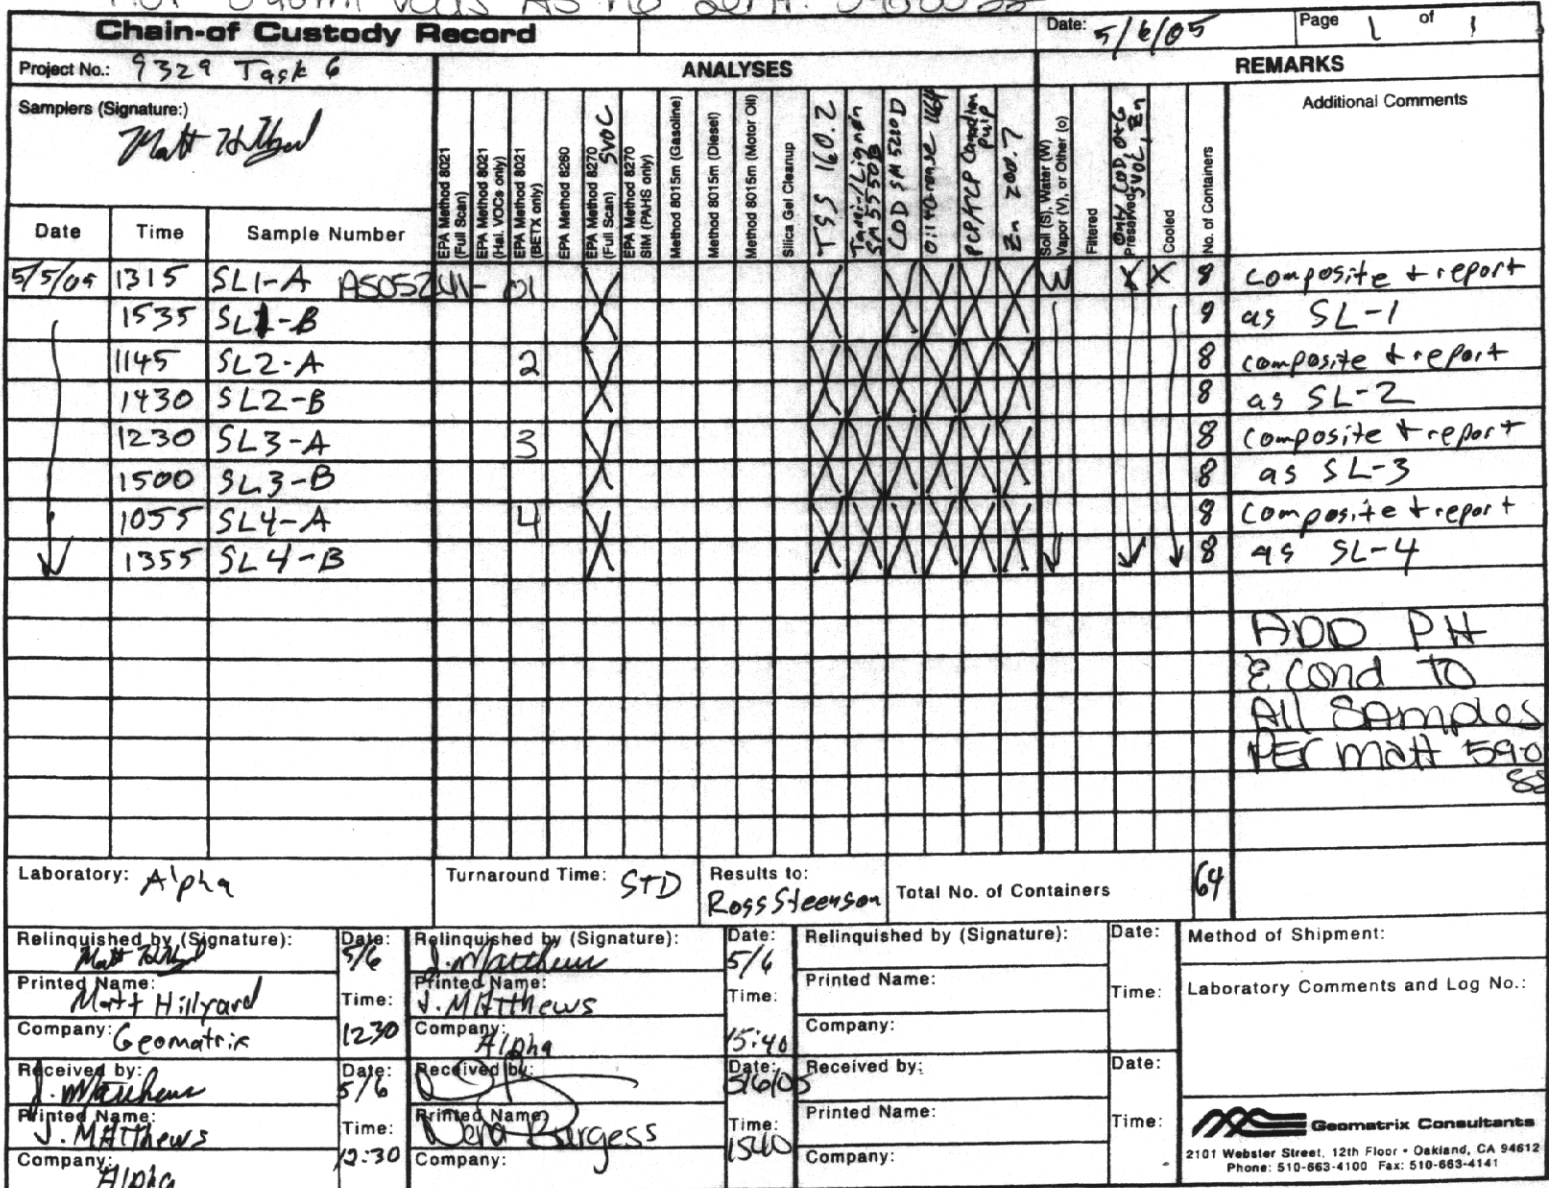 Chain-of Custody Record
Date: 5/6/05
Page 1 of 1
Project No.: 9329 Task 6
ANALYSES
REMARKS
Samplers (Signature:)
Matt Hillyard
EPA Method 8021 (Full Scan)
EPA Method 8021 (Hal. VOCs only)
EPA Method 8021 (BETX only)
EPA Method 8260
EPA Method 8270 (Full Scan) SVOC
EPA Method 8270 SIM (PAHS only)
Method 8015m (Gasoline)
Method 8015m (Diesel)
Method 8015m (Motor Oil)
Silica Gel Cleanup
TSS 160.2
Tanin/Lignon SM5550B
COD SM5210D
Oil+Grease 1664
PCP/TCP Canadian Pulp
Zn 200.7
Soil (S), Water (W) Vapor (V), or Other (o)
Filtered
Only COD, O+G SVOC, Zn
Preserved
Cooled
No. of Containers
Additional Comments
Date Time Sample Number
5/5/05 1315 SL1-A AS05241-01 X X X X X X W X X 8 composite + report
1535 SL1-B X X X X X X 8 as SL-1
1145 SL2-A 2 X X X X X X X 8 composite + report
1430 SL2-B X X X X X X X 8 as SL-2
1230 SL3-A 3 X X X X X X X 8 composite + report
1500 SL3-B X X X X X X X 8 as SL-3
1055 SL4-A 4 X X X X X X X 8 composite + report
1355 SL4-B X X X X X X X 8 as SL-4
ADD PH
& cond TO
All Samples
PER Matt 590
Laboratory: Alpha
Turnaround Time: STD
Results to: Ross Steenson
Total No. of Containers 64
Relinquished by (Signature): Matt Hillyard
Date: 5/6
Printed Name: Matt Hillyard
Time: 1230
Company: Geomatrix
Received by: J. Matthews
Date: 5/6
Printed Name: J. MAtthews
Time: 12:30
Company: Alpha
Relinquished by (Signature): J. Matthews
Date: 5/6
Printed Name: J. MAtthews
Time: 15:40
Company: Alpha
Received by:
Date: 5/6/05
Printed Name: Dena Burgess
Time: 1540
Company:
Relinquished by (Signature):
Date:
Printed Name:
Time:
Company:
Received by:
Date:
Printed Name:
Time:
Company:
Method of Shipment:
Laboratory Comments and Log No.:
Geomatrix Consultants
2101 Webster Street, 12th Floor • Oakland, CA 94612
Phone: 510-663-4100 Fax: 510-663-4141